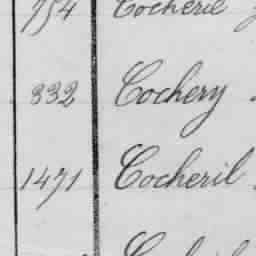 754 Cocheril
332 Cochery
1471 Cocheril